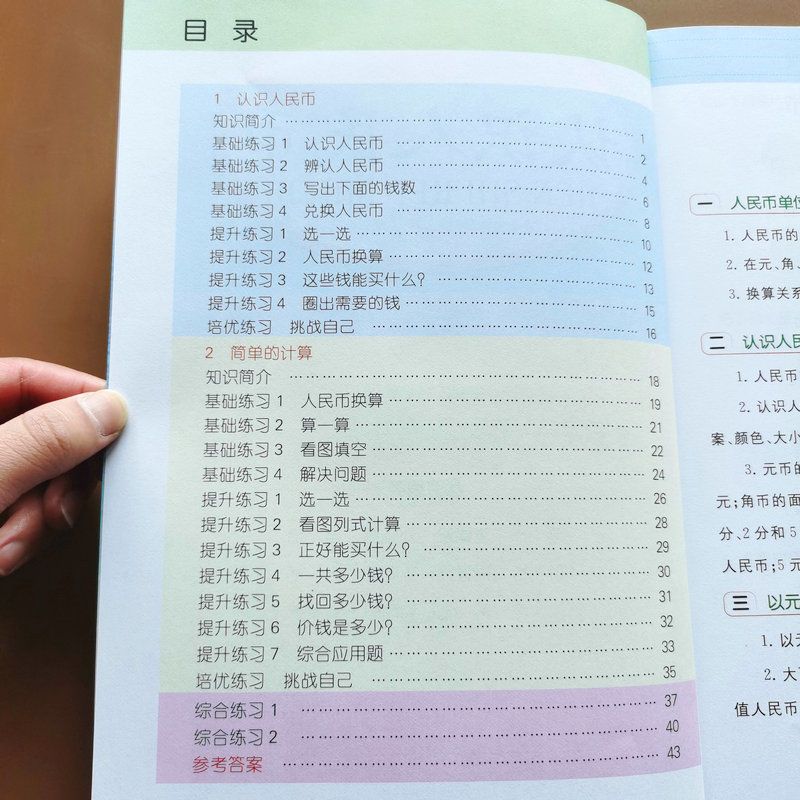 目 录
1 认识人民币
知识简介 …… 1
基础练习1 认识人民币 …… 2
基础练习2 辨认人民币 …… 4
基础练习3 写出下面的钱数 …… 6
基础练习4 兑换人民币 …… 8
提升练习1 选一选 …… 10
提升练习2 人民币换算 …… 12
提升练习3 这些钱能买什么? …… 13
提升练习4 圈出需要的钱 …… 15
培优练习 挑战自己 …… 16
2 简单的计算
知识简介 …… 18
基础练习1 人民币换算 …… 19
基础练习2 算一算 …… 21
基础练习3 看图填空 …… 22
基础练习4 解决问题 …… 24
提升练习1 选一选 …… 26
提升练习2 看图列式计算 …… 28
提升练习3 正好能买什么? …… 29
提升练习4 一共多少钱? …… 30
提升练习5 找回多少钱? …… 31
提升练习6 价钱是多少? …… 32
提升练习7 综合应用题 …… 33
培优练习 挑战自己 …… 35
综合练习1 …… 37
综合练习2 …… 40
参考答案 …… 43
一 人民币单位
1. 人民币的
2. 在元、角、
3. 换算关系
二 认识人民
1. 人民币
2. 认识人
案、颜色、大小
3. 元币的
元;角币的面
分、2分和5
人民币;5元
三 以元
1. 以元
2. 大
值人民币